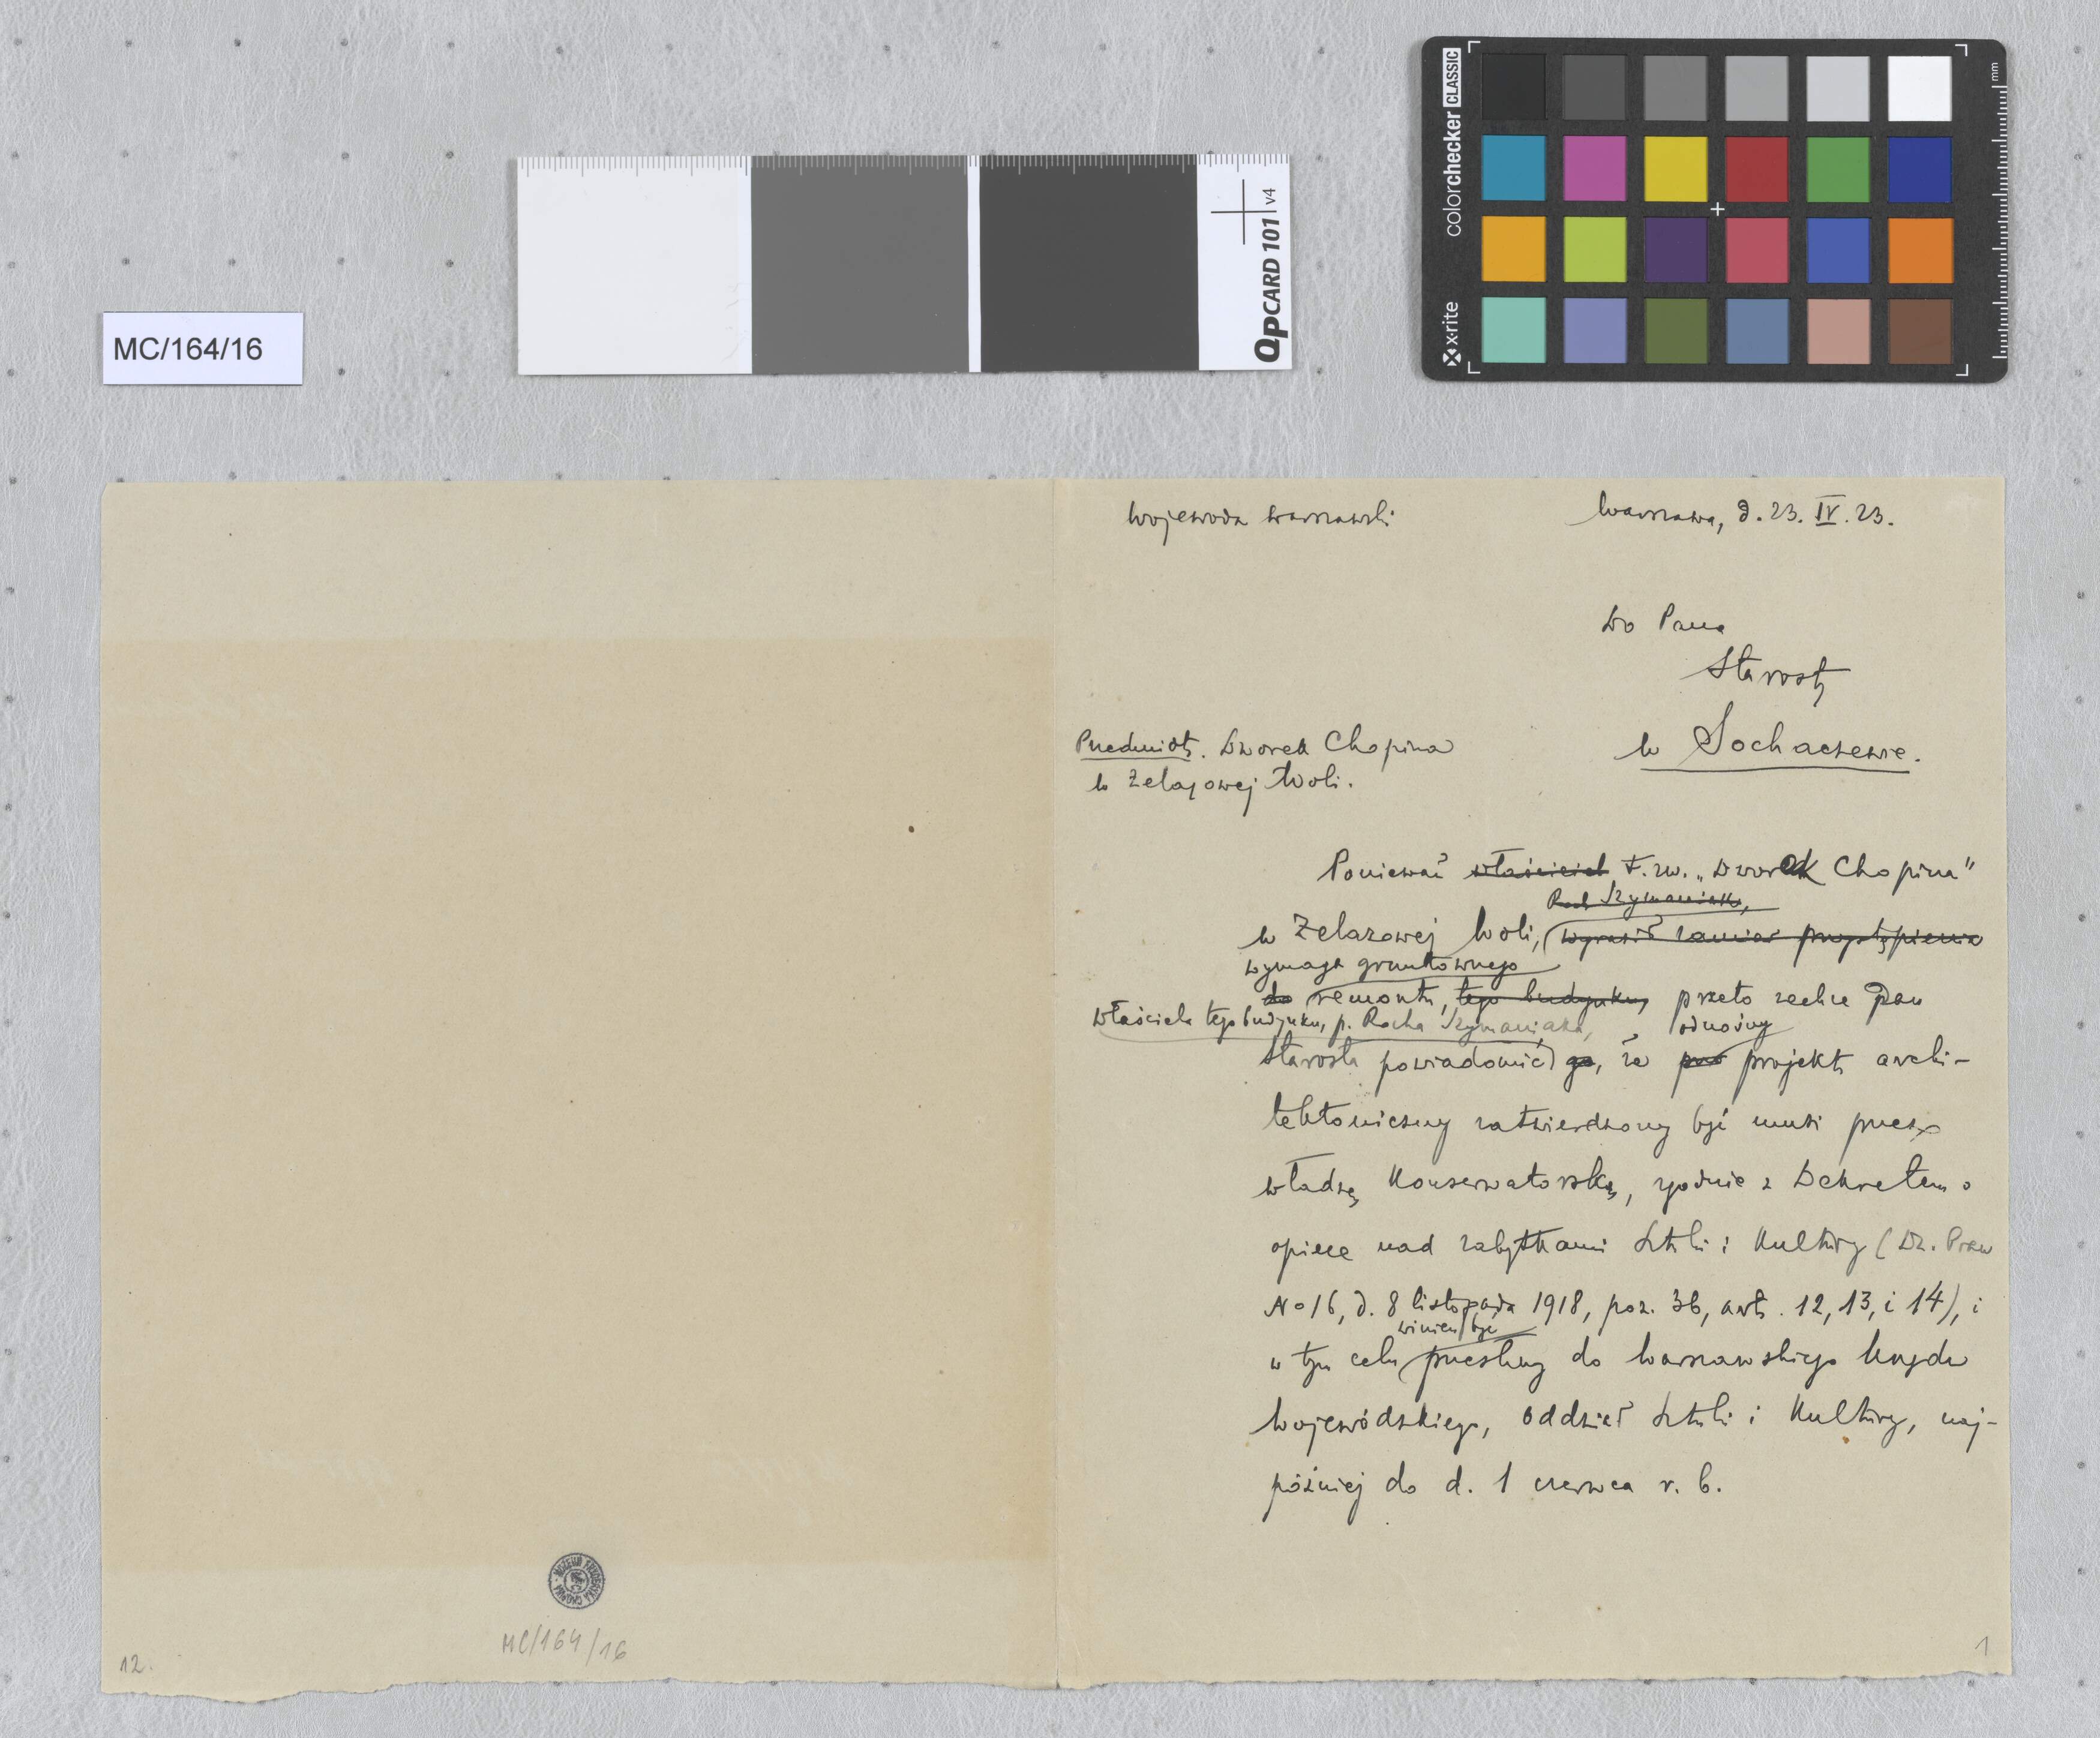 MC/164/16
QPCARD 101 v4
colorchecker CLASSIC
x-rite
mm
Wojewoda Warszawski
Warszawa, d. 23. IV. 23.
Do Pana
Starosty
w Sochaczewie.
Przedmiot. Dworek Chopina
w Żelazowej Woli.
Ponieważ właściciel t. zw. „Dworek Chopina"
Roch Szymaniak,
w Żelazowej Woli, wyraził zamiar przystąpienia
wymaga gruntownego
do remontu, tego budynku, przeto zechce Pan
właściciela tego budynku, p. Rocha Szymaniaka, odnośny
Starosta powiadomić go, że projekt archi-
tektoniczny zatwierdzony być musi przez
władzę Konserwatorską, zgodnie z Dekretem o
opiece nad zabytkami Sztuki i Kultury (Dz. Praw
No 16, d. 8 listopada 1918, poz. 36, art. 12, 13, i 14), i
winien być
w tym celu przesłany do Warszawskiego Urzędu
Wojewódzkiego, Oddział Sztuki i Kultury, naj-
później do d. 1 czerwca r. b.
MUZEUM FRYDERYKA CHOPINA
MC/164/16
12.
1